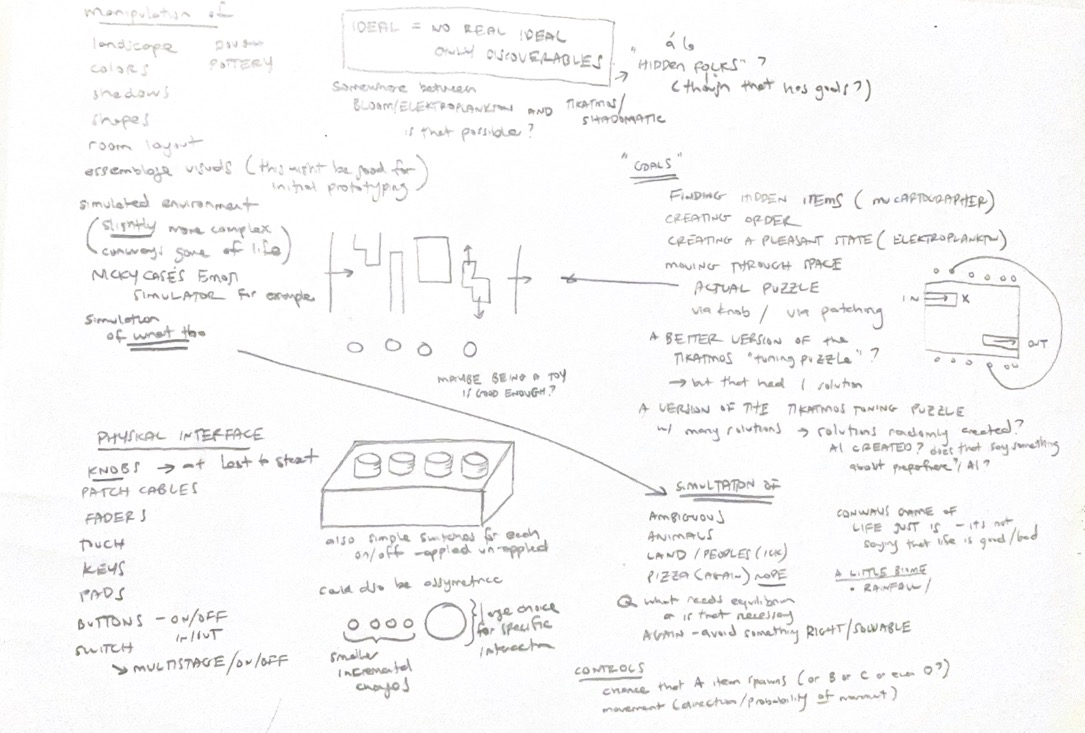 manipulation of
landscape
colors
shadows
shapes
room layout
assemblage visuals (this might be good for
initial prototyping)
simulated environment
(slightly more complex
conways game of life)
NICKY CASE'S EMOJI
SIMULATOR for example
simulation
of what tho
POTTERY
IDEAL = NO REAL IDEAL
ONLY DISCOVERABLES
Somewhere between
BLOOM/ELEKTROPLANKTON AND TIKATMOS/
SHADOMATIC
is that possible?
á la
"HIDDEN FOLKS"?
(though that has goals?)
"GOALS"
FINDING HIDDEN ITEMS (MUCARTOGRAPHER)
CREATING ORDER
CREATING A PLEASANT STATE (ELEKTROPLANKTON)
MOVING THROUGH SPACE
ACTUAL PUZZLE
via knob / via patching
A BETTER VERSION OF the
TIKATMOS "tuning puzzle"?
→ but that had 1 solution
A VERSION OF THE TIKATMOS TUNING PUZZLE
w/ many solutions → solutions randomly created?
AI CREATED? does that say something
about / AI?
IN X
OUT
MAYBE BEING A TOY
IS GOOD ENOUGH?
PHYSICAL INTERFACE
KNOBS → at least to start
PATCH CABLES
FADERS
TOUCH
KEYS
PADS
BUTTONS - ON/OFF
IN/OUT
SWITCH
↘ MULTISTAGE/ON/OFF
also simple switches for each
on/off - applied un-applied
could also be assymetrice
smaller
incremental
changes
large choice
for specific
interaction
SIMULTATION OF
AMBIGUOUS
ANIMALS
LAND/PEOPLES (ICK)
PIZZA (AGAIN) NOPE
Q what needs equilibrium
or is that necessary
AGAIN - avoid something RIGHT/SOLVABLE
CONWAYS GAME OF
LIFE JUST IS - its not
saying that life is good/bad
A LITTLE BIOME
• RAINFALL/
CONTROLS
chance that A item spawns (or B or C or even D?)
movement (direction/probability of movement)